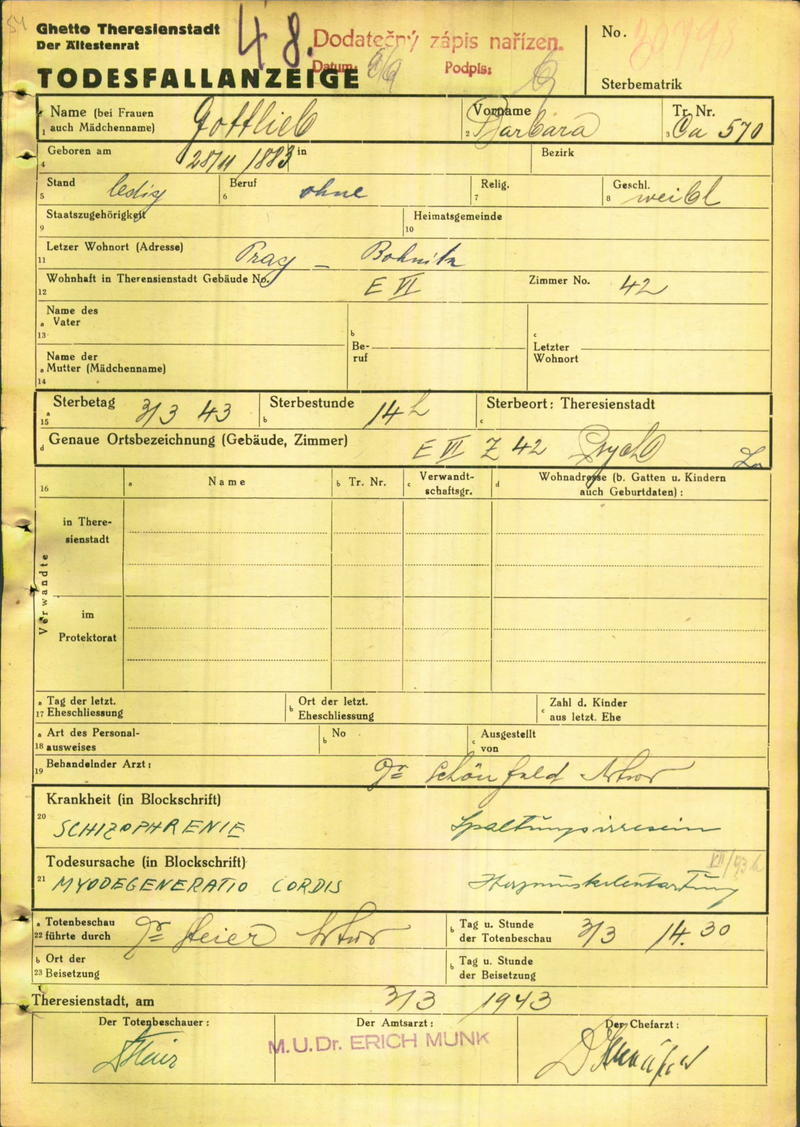 54
Ghetto Theresienstadt
Der Ältestenrat
TODESFALLANZEIGE
48.
Dodatečný zápis nařízen.
Datum: Podpis:
No.
Sterbematrik
Name (bei Frauen auch Mädchenname) Gottlieb
1
Vorname Barbara
2
Tr. Nr. Ca 570
3
Geboren am 28/11 1883 in Bezirk
4
Stand ledig Beruf ohne Relig. Geschl. weibl
5 6 7 8
Staatszugehörigkeit Heimatsgemeinde
9 10
Letzer Wohnort (Adresse) Prag – Bohnitz
11
Wohnhaft in Theresienstadt Gebäude No. E VI Zimmer No. 42
12
Name des
a Vater
13
b
Beruf
c
Letzter
Wohnort
Name der
a Mutter (Mädchenname)
14
a Sterbetag 3/3 43 Sterbestunde 14h Sterbeort: Theresienstadt
15 b c
d Genaue Ortsbezeichnung (Gebäude, Zimmer) E VI Z 42
16 a Name b Tr. Nr. c Verwandt-
schaftsgr. d Wohnadresse (b. Gatten u. Kindern
auch Geburtdaten) :
Verwandte
in There-
sienstadt
im
Protektorat
a Tag der letzt.
17 Eheschliessung
b Ort der letzt.
Eheschliessung
c Zahl d. Kinder
aus letzt. Ehe
a Art des Personal-
18 ausweises
b No
c Ausgestellt
von
19 Behandelnder Arzt : Dr Schönfeld Artur
Krankheit (in Blockschrift)
20 SCHIZOPHRENIE Spaltungsirresein
Todesursache (in Blockschrift)
21 MYODEGENERATIO CORDIS Herzmuskelentartung
a Totenbeschau
22 führte durch Dr Steier Artur
b Tag u. Stunde
der Totenbeschau 3/3 14.30
b Ort der
23 Beisetzung
b Tag u. Stunde
der Beisetzung
Theresienstadt, am 3/3 1943
Der Totenbeschauer : Der Amtsarzt : Der Chefarzt :
M.U.Dr. ERICH MUNK